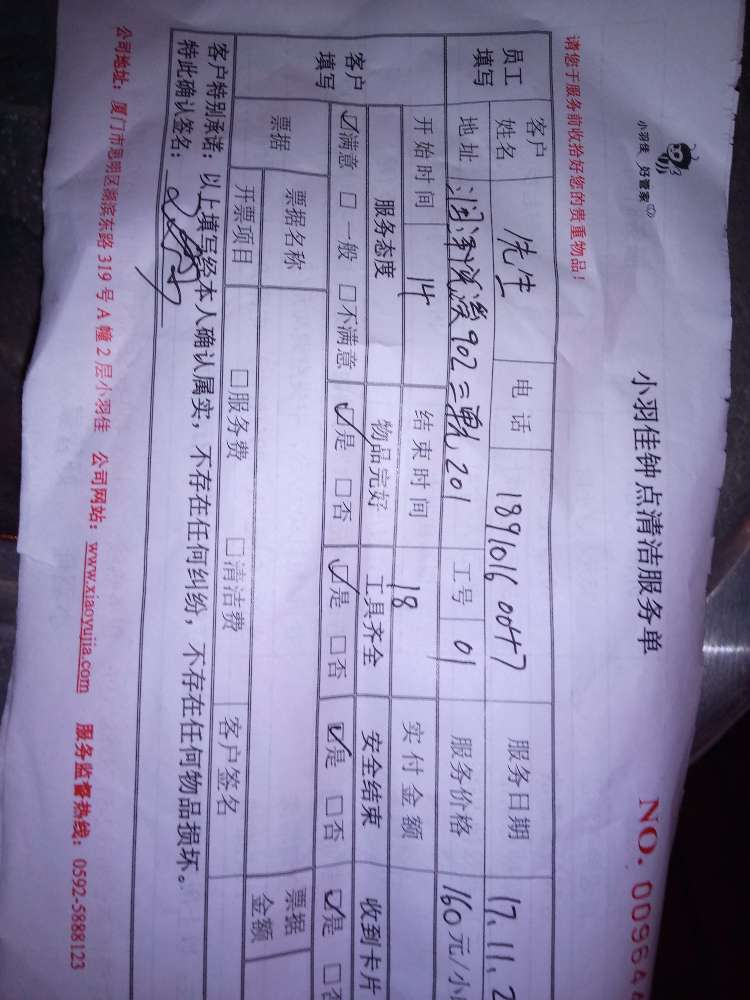 小羽佳 好管家
小羽佳钟点清洁服务单
NO. 00964
请您于服务前收拾好您的贵重物品！
员工填写 客户姓名 先生 电话 18910160047 服务日期 17.11.2
地址 902 201 工号 01 服务价格 160元/小
开始时间 14 结束时间 18 实付金额
客户填写 服务态度 物品完好 工具齐全 安全结束 收到卡片
☑满意 □一般 □不满意 ☑是 □否 ☑是 □否 ☑是 □否 ☑是 □否
票据 票据名称 票据金额
开票项目 □服务费 □清洁费 客户签名
客户特别承诺：以上填写经本人确认属实，不存在任何纠纷，不存在任何物品损坏。
特此确认签名：
公司地址：厦门市思明区湖滨东路 319 号 A 幢 2 层小羽佳 公司网站：www.xiaoyujia.com 服务监督热线：0592-5888123